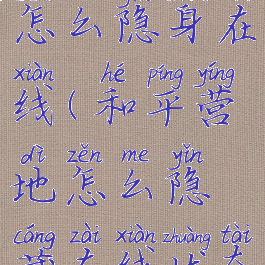 怎么隐身在
xiàn hé píng yíng
线(和平营
dì zěn me yǐn
地怎么隐
cáng zài xiàn zhuàng tài